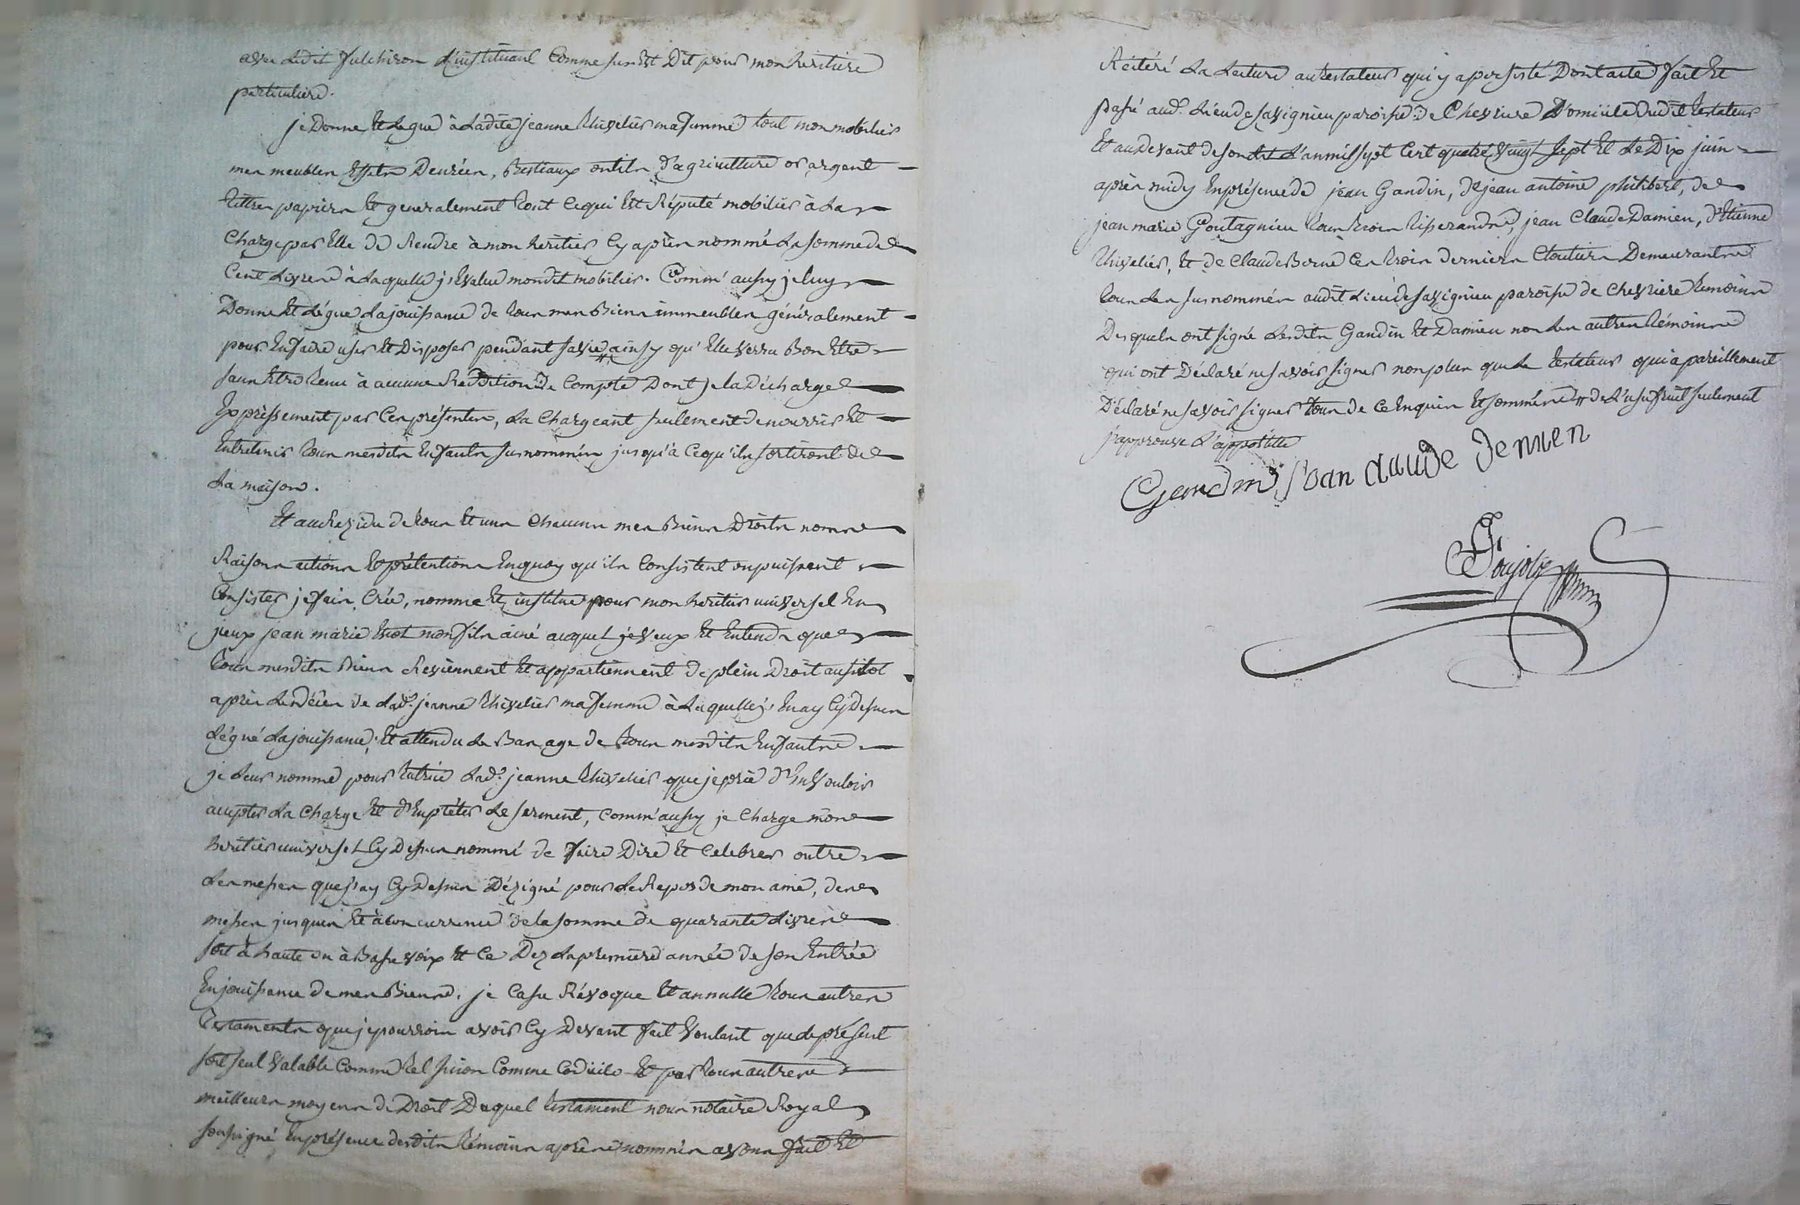 avec ledit fulchiron l'instituant comme sus est dit pour mon heritiere
particuliere.
je donne et legue à ladite jeanne Thivelier ma femme tout mon mobilier
mes meubles effets denrées, bestiaux outils d'agriculture or argent
titres papiers et generalement tout ce qui est réputé mobilier à la
charge par elle de rendre à mon heritier cy après nommé la somme de
cent livres à laquelle j'evalue mondit mobilier. Comm' aussy je luy
donne et légue la jouissance de tous mes biens immeubles généralement
pour en faire user et disposer pendant sa vie ainsy qu'elle verra bon etre
sans etre tenue à aucune reddition de compte dont je la décharge
expressement par ces presentes, la chargeant seulement de nourrir et
entretenir tous mesdits enfants susnommés jusqu'à ce qu'ils sortiront de
la maison.
Et au residu de tous et uns chacuns mes biens droits noms
raisons actions et prétentions en quoy qu'ils consistent ou puissent
consister je fais, crée, nomme et institue pour mon heritier universel en
jeux jean marie mon fils ainé auquel je veux et entends que
tous mesdits biens reviennent et appartiennent de plein droit aussitot
après le décès de lad. jeanne Thivelier ma femme à laquelle j'en ay cy dessus
légué la jouissance, et attendu le bas age de tous mesdits enfants
je leur nomme pour tutrice lad. jeanne Thivelier que je prie d'en vouloir
accepter la charge et d'en prêter le serment, comm' aussy je charge mon
heritier universel cy dessus nommé de faire dire et celebrer outre
les messes que j'ay cy dessus désigné pour le repos de mon ame, des
messes jusques et à concurrence de la somme de quarante livres
soit à haute ou à basse voix et ce dez la premiere année de son entrée
en jouissance de mes biens. je casse révoque et annulle tous autres
testaments que je pourrois avoir cy devant fait voulant que le présent
soit seul valable comme tel sinon comme codicile et par tous autres
meilleurs moyens de droit duquel testament nous notaire royal
soussigné en présence desdits témoins après nommés avons fait et
réiteré la lecture au testateur qui y a persisté dont acte fait et
passé aud. lieu de Savignieu paroisse de Chevriere domicile dudit testateur
et au devant de son lit l'an mil sept cent quatre vingt sept et le dix juin
après midy en présence de jean Gandin, de jean antoine philibert, de
jean marie Goutagnieu tous trois tisserands, jean Claude Damien, d'Etienne
Thivelier, et de Claude ces trois derniers cloutiers demeurants
tous les susnommés audit lieu de Savignieu paroisse de Chevriere temoins
desquels ont signé lesdits Gandin et Damien non les autres témoins
qui ont déclaré ne savoir signer non plus que le testateur qui a pareillement
déclaré ne savoir signer tous de ce enquis et sommés // de l'usufruit seulement
j'approuve l'appostille
Gandin Jean Claude Demien